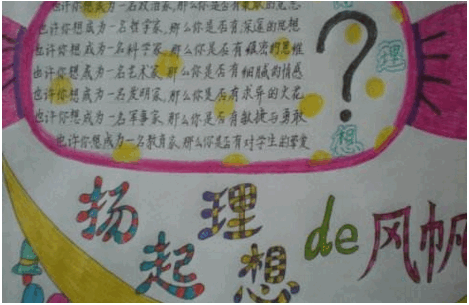 也许你想成为一名政治家,那么你是否有
也许你想成为一名哲学家,那么你是否有深邃的思想
也许你想成为一名科学家,那么你是否有缜密的思维
也许你想成为一名艺术家,那么你是否有细腻的情感
也许你想成为一名发明家,那么你是否有求异的火花
也许你想成为一名军事家,那么你是否有敏捷与勇敢
也许你想成为一名教育家,那么你是否有对学生的挚爱
?
理
想
扬起理想de风帆